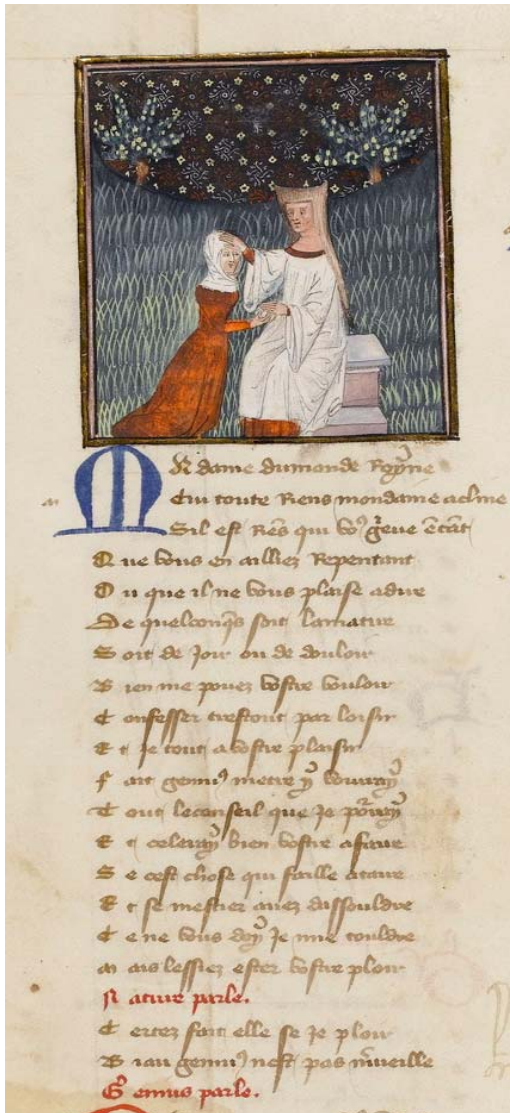 Ma dame du monde Royne
Cui toute Riens mondaine acline
Sil est Rens qui vo9 greve
Que vous en ailliez Repentant
Ou que il ne vous plaise a dire
De quelconqs soit lamatire
Soit de Joir ou de douloir
Bien me povez vostre vouloir
Confesser trestout par loisir
Et Je tout a vostre plaisir
Fait geniu9 metre y vourray
Tout le conseil que Je porray
Et celeray bien vostre afaire
Se cest chose qui faille a taire
Et se mestier avez dassouldre
Ce ne vous doy Je mie touldre
Mais lessiez ester vostre plour
Nature parle.
Certez fait elle se Je plour
Biau geniu9 nest pas mveille
Genius parle.